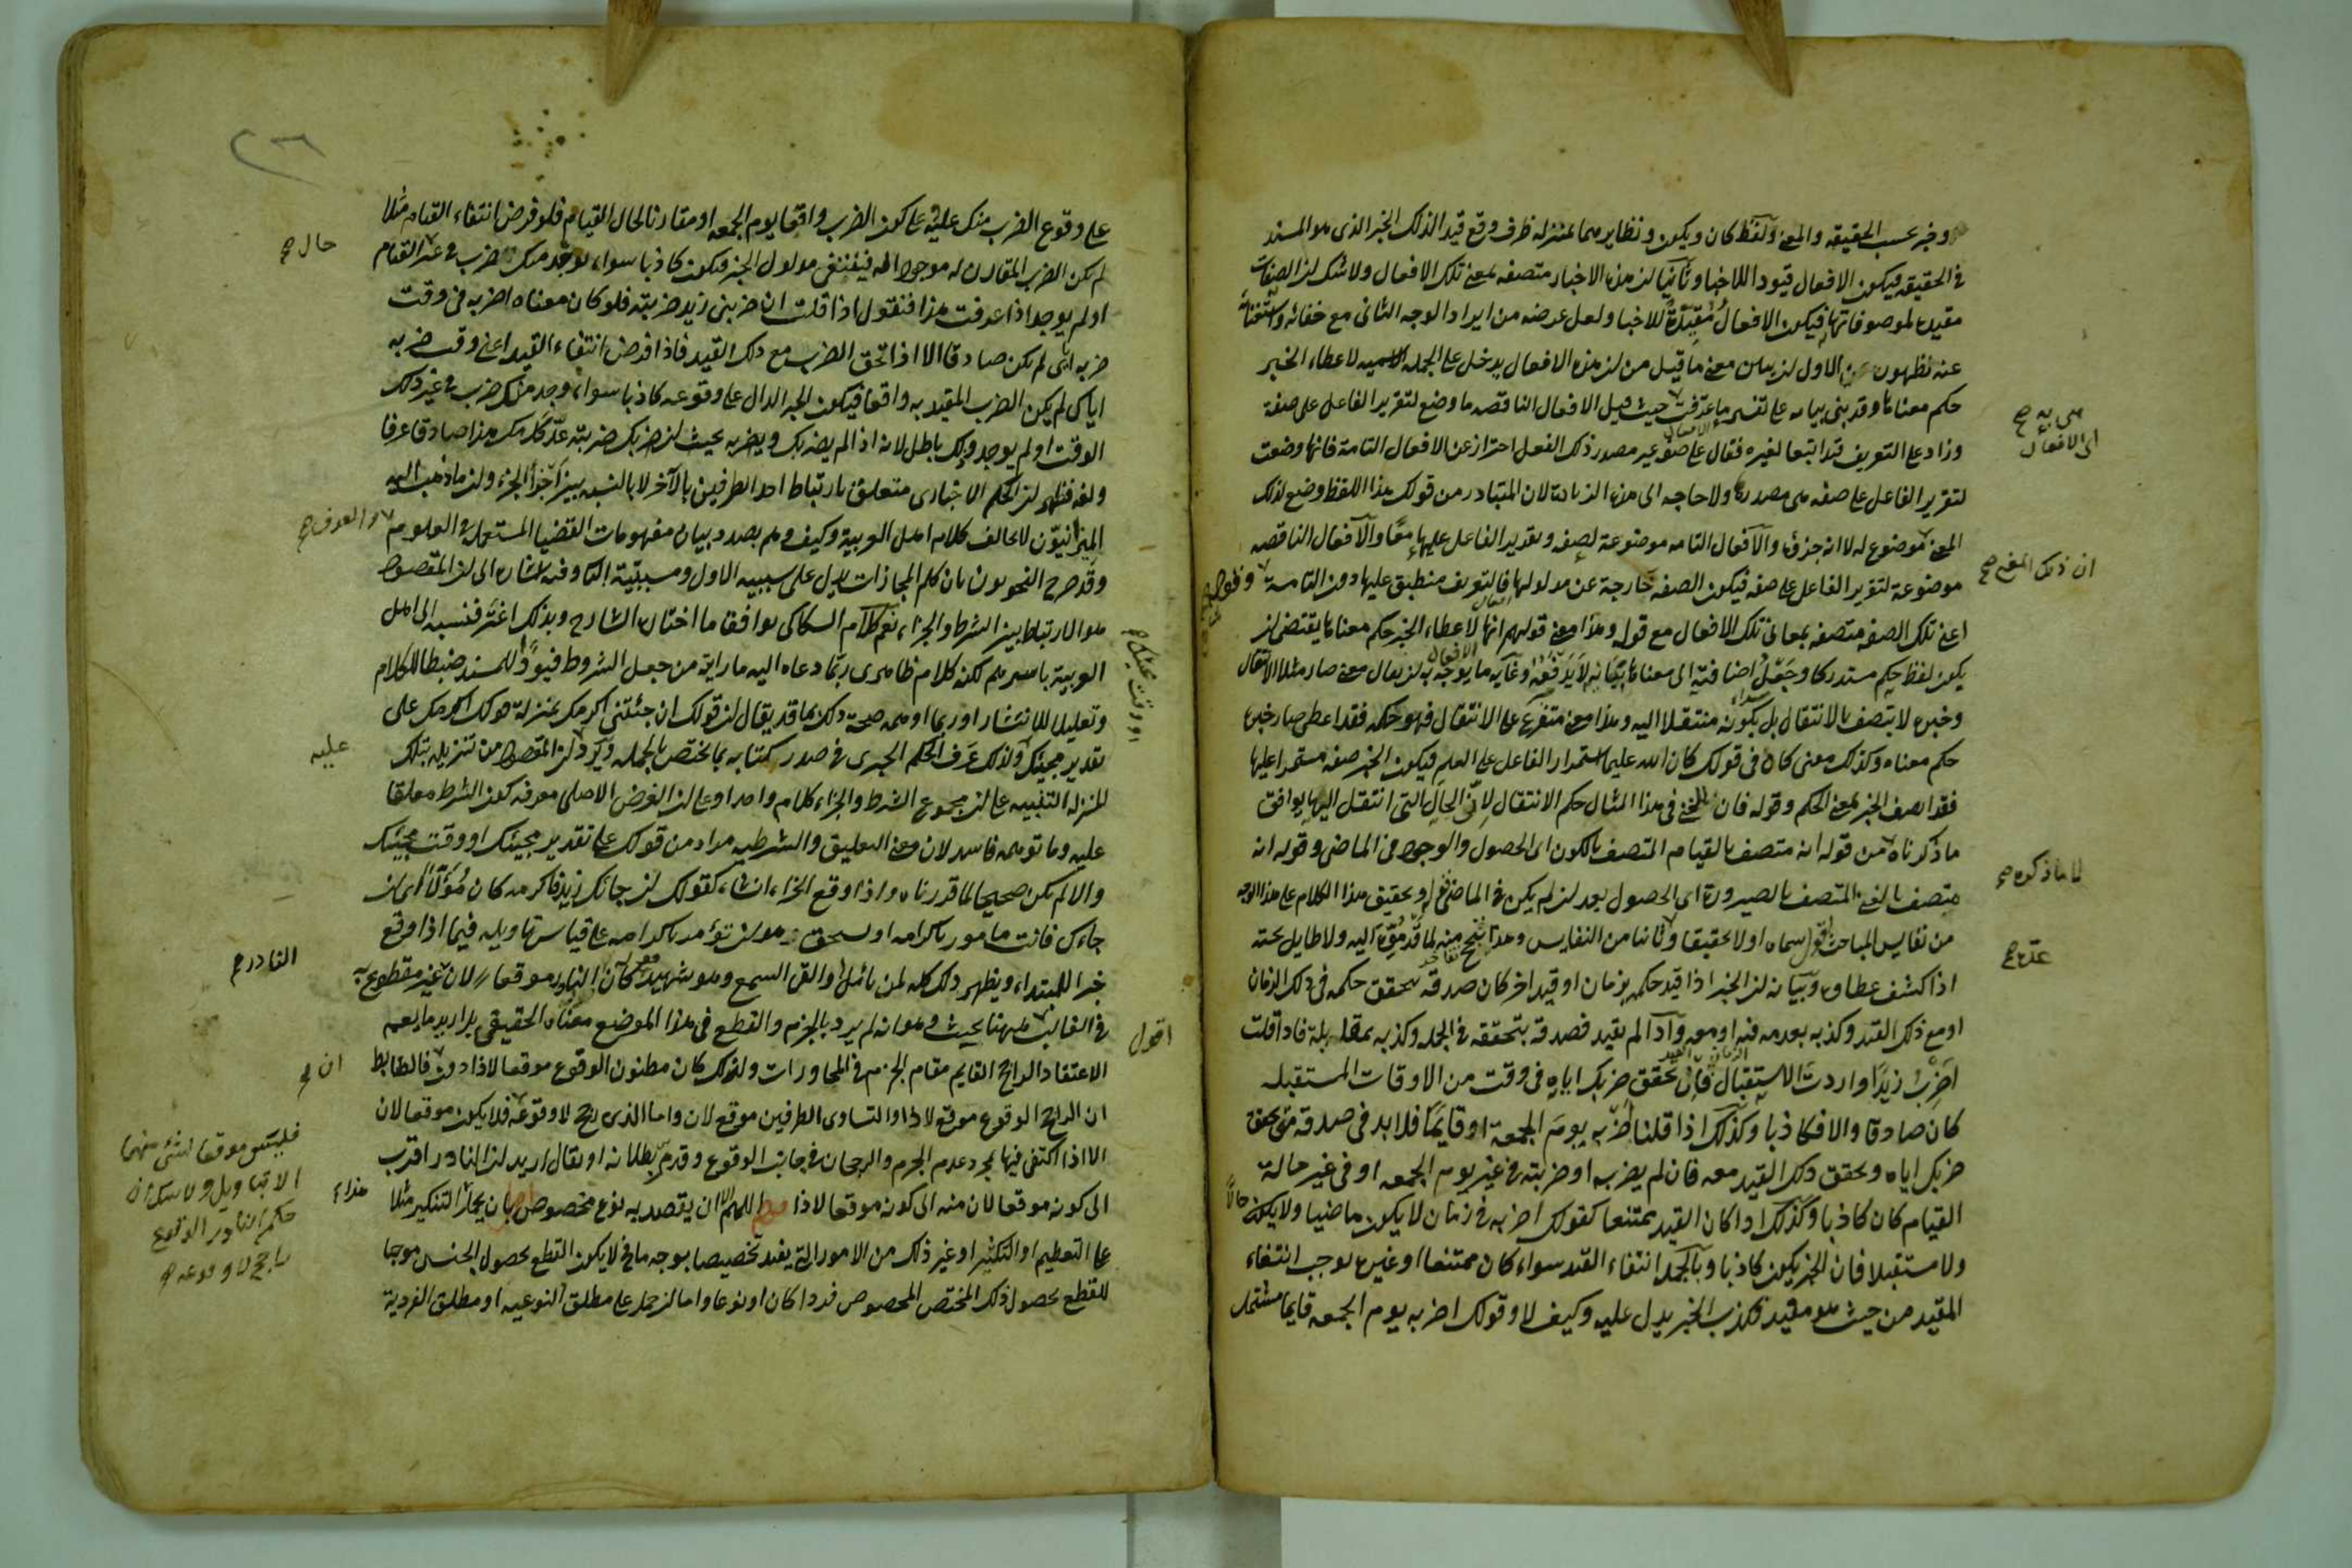 وخبر بحسب الحقيقه والمعنى ولفظ كان ويكون ونظايرهما بمنزله ظرف وقع قيدا لذلك الخبر الذى هو المسند
فى الحقيقه فيكون الافعال قيودا للاخبار وثانيا ان هذه الاخبار متصفه بمعنى تلك الافعال ولا شك ان الصفات
مقيده لموصوفاتها فيكون الافعال مقيدة للاخبار ولعل غرضه من ايراد الوجه الثانى مع خفائه واستغنائه
عنه بظهور الاول ان يبين معنى ما قيل من ان هذه الافعال يدخل على الجمله الاسميه لاعطاء الخبر
حكم معناها وقد بنى بيانه على تفسير ما عرفت حيث قيل الافعال الناقصه ما وضع لتقرير الفاعل على صفة
وزاد على التعريف قيدا تبعا لغيره فقال على صفه غير مصدر ذلك الفعل احترازا عن الافعال التامة فانها وضعت
لتقرير الفاعل على صفه هى مصدرها ولا حاجه الى هذه الزيادة لان المتبادر من قولك هذا اللفظ وضع لذلك
المعنى موضوع له لا انه جزؤه والافعال التامه موضوعة لصفه وتقرير الفاعل عليها معا والافعال الناقصه
موضوعة لتقرير الفاعل على صفه فيكون الصفه خارجة عن مدلولها فالتعريف منطبق عليها دون التامة
اعنى تلك الصفه متصفه بمعانى تلك الافعال مع قوله وهذا معنى قولهم انها لاعطاء الخبر حكم معناها يقتضى ان
يكون لفظ حكم مستدركا وجعل اضافته الى معناها بيانيه لا يدفعه وغايه ما يوجه به ان يقال معنى صار مثلا الانتقال
وخبره لا يتصف بالانتقال بل بكونه منتقلا اليه وهذا معنى متفرع على الانتقال فهو حكمه فقد اعطى صار خبره
حكم معناه وكذلك معنى كان فى قولك كان الله عليما استمرار الفاعل على العلم فيكون الخبر صفه مستمرا عليها
فقد اتصف الخبر بمعنى الحكم وقوله فان الغنى فى هذا المثال حكم الانتقال لانه الحال التى انتقل اليها يوافق
ما ذكرناه من قوله انه متصف بالقيام المتصف بالكون اى الحصول والوجود فى الماضى وقوله انه
متصف بالغنى المتصف بالصيرورة اى الحصول بعد ان لم يكن فى الماضى قوله وتحقيق هذا الكلام على هذا الوجه
من نفايس المباحث اقول سماه اولا تحقيقا وثانيا من النفايس وهذا تبجح منه لما قد مر اليه ولا طايل تحته
اذا كشف غطاؤه وبيانه ان الخبر اذا قيد حكمه بزمان او قيد اخر كان صدقه بتحقق حكمه فى ذلك الزمان
او مع ذلك القيد وكذبه بعدمه فيه او معه واذا لم يقيد فصدقه بتحققه فى الجمله وكذبه بمقابله فاذا قلت
اضرب زيدا واردت الاستقبال فان تحقق ضربك اياه فى وقت من الاوقات المستقبله
كان صادقا والا فكاذبا وكذلك اذا قلنا اضربه يوم الجمعة او قايما فلا بد فى صدقه من تحقق
ضربك اياه وتحقق ذلك القيد معه فان لم يضربه او ضربته فى غير يوم الجمعه او فى غير حالة
القيام كان كاذبا وكذلك اذا كان القيد ممتنعا كقولك اضربه فى زمان لا يكون ماضيا ولا يكون حالا
ولا مستقبلا فان الخبر يكون كاذبا وبالجمله انتفاء القيد سواء كان ممتنعا او غيره يوجب انتفاء
المقيد من حيث هو مقيد فكذب الخبر يدل عليه وكيف لا وقولك اضربه يوم الجمعه قايما مشتمل
هى به صح
اى الافعال
ان ذلك المعنى صح
لا ما ذكره صح
على وقوع الضرب منك عليه وعلى كون الضرب واقعا يوم الجمعه او مقارنا لحال القيام فلو فرض انتفاء القيام مثلا
لم يكن الضرب المقارن له موجودا فينتفى مدلول الخبر فيكون كاذبا سواء يوجد منك ضرب فى غير القيام
او لم يوجد اذا عرفت هذا فنقول اذا قلت ان ضربنى زيد ضربته فلو كان معناه اضربه فى وقت
ضربه اياى لم يكن صادقا الا اذا تحقق الضرب مع ذلك القيد فاذا فرض انتفاء القيد اعنى وقت ضربه
اياى لم يكن الضرب المقيد به واقعا فيكون الخبر الدال على وقوعه كاذبا سواء وجد منك ضرب فى غير ذلك
الوقت او لم يوجد وذلك باطل لانه اذا لم يضربك ويضربه بحيث ان ضربك ضربته عد كلامك هذا صادقا عرفا
ولغه فظهر ان الحكم الاخبارى متعلق بارتباط احد الطرفين بالآخر لا بالنسبه بين اجزاء الجزاء وان ما ذهب اليه
الميزانيون لا يخالف كلام اهل العربية وكيف وهم بصدد بيان مفهومات القضايا المستعمله فى العلوم
وقد صرح النحويون بان كلم المجازات تدل على سببيه الاول ومسببية الثانى وفيه اشاره الى ان المقصود
هو الارتباط بين الشرط والجزاء نعم كلام السكاكى يوافق ما اختاره الشارح وبذلك اغتر فنسبه الى اهل
العربية باسرهم لكنه كلام ظاهرى ربما دعاه اليه ما رايه من جعل الشروط قيودا للمسند ضبطا للكلام
وتقليلا للانتشار او ربما اوهمه صحة ذلك ما قد يقال ان قولك ان جئتنى اكرمك بمنزلة قولك اكرمك على
تقدير مجيئك ولذلك عرف الحكم الخبرى فى صدر كتابه بما يختص بالجمله ويرد ان المقصود من تنزيله بتلك
المنزله التنبيه على ان مجموع الشرط والجزاء كلام واحد او على ان الغرض الاصلى معرفه كون الشرط معلقا
عليه وما توهمه فاسد لان معنى التعليق والشرطيه مراد من قولك على تقدير مجيئك او وقت مجيئك
والا لم يكن صحيحا لما قدرناه واذا وقع الجزاء انشاء كقولك ان جاءك زيد فاكرمه كان مؤولا اى ان
جاءك فانت مامور باكرامه او يستحق هو ان تؤمر باكرامه على قياس تاويله فيما اذا وقع
خبرا للمبتداء ويظهر ذلك كله لمن تامل والقى السمع وهو شهيد قوله كان النادر موقعا لان غير مقطوع به
فى الغالب ههنا بحيث وهو انه لم يرد بالجزم والقطع فى هذا الموضع معناه الحقيقى بل اريد ما يعم
الاعتقاد الراجح القايم مقام الجزم فى المحاورات ولذلك كان مظنون الوقوع موقعا لاذا دون ان فالضابط
ان الراجح الوقوع موقع لاذا والتساوى الطرفين موقع لان واما الذى رجح لا وقوعه فلا يكون موقعا لان
الا اذا اكتفى فيها بمجرد عدم الجزم والرجحان فى جانب الوقوع وقد مر بطلانه او يقال اريد ان النادر اقرب
الى كونه موقعا لان منه الى كونه موقعا لاذا قوله اللهم الا ان يقصد به نوع مخصوص اقول بان يحمل التنكير مثلا
على التعظيم او التكثير او غير ذلك من الامور التى يفيد تخصيصا بوجه ما فح لا يكون القطع بحصول الجنس موجبا
للقطع بحصول ذلك المختص المخصوص فردا كان او نوعا واما ان حمل على مطلق النوعيه او مطلق الفردية
حال صح
والعرف صح
او وقت مجيئك صح
عليه
النادر صح
اقول
فليس موقعا لشئ منهما
الا بتاويل ولا شك ان
حكم النادر الوقوع
راجح لا وقوعه صح
هذا
٢٦